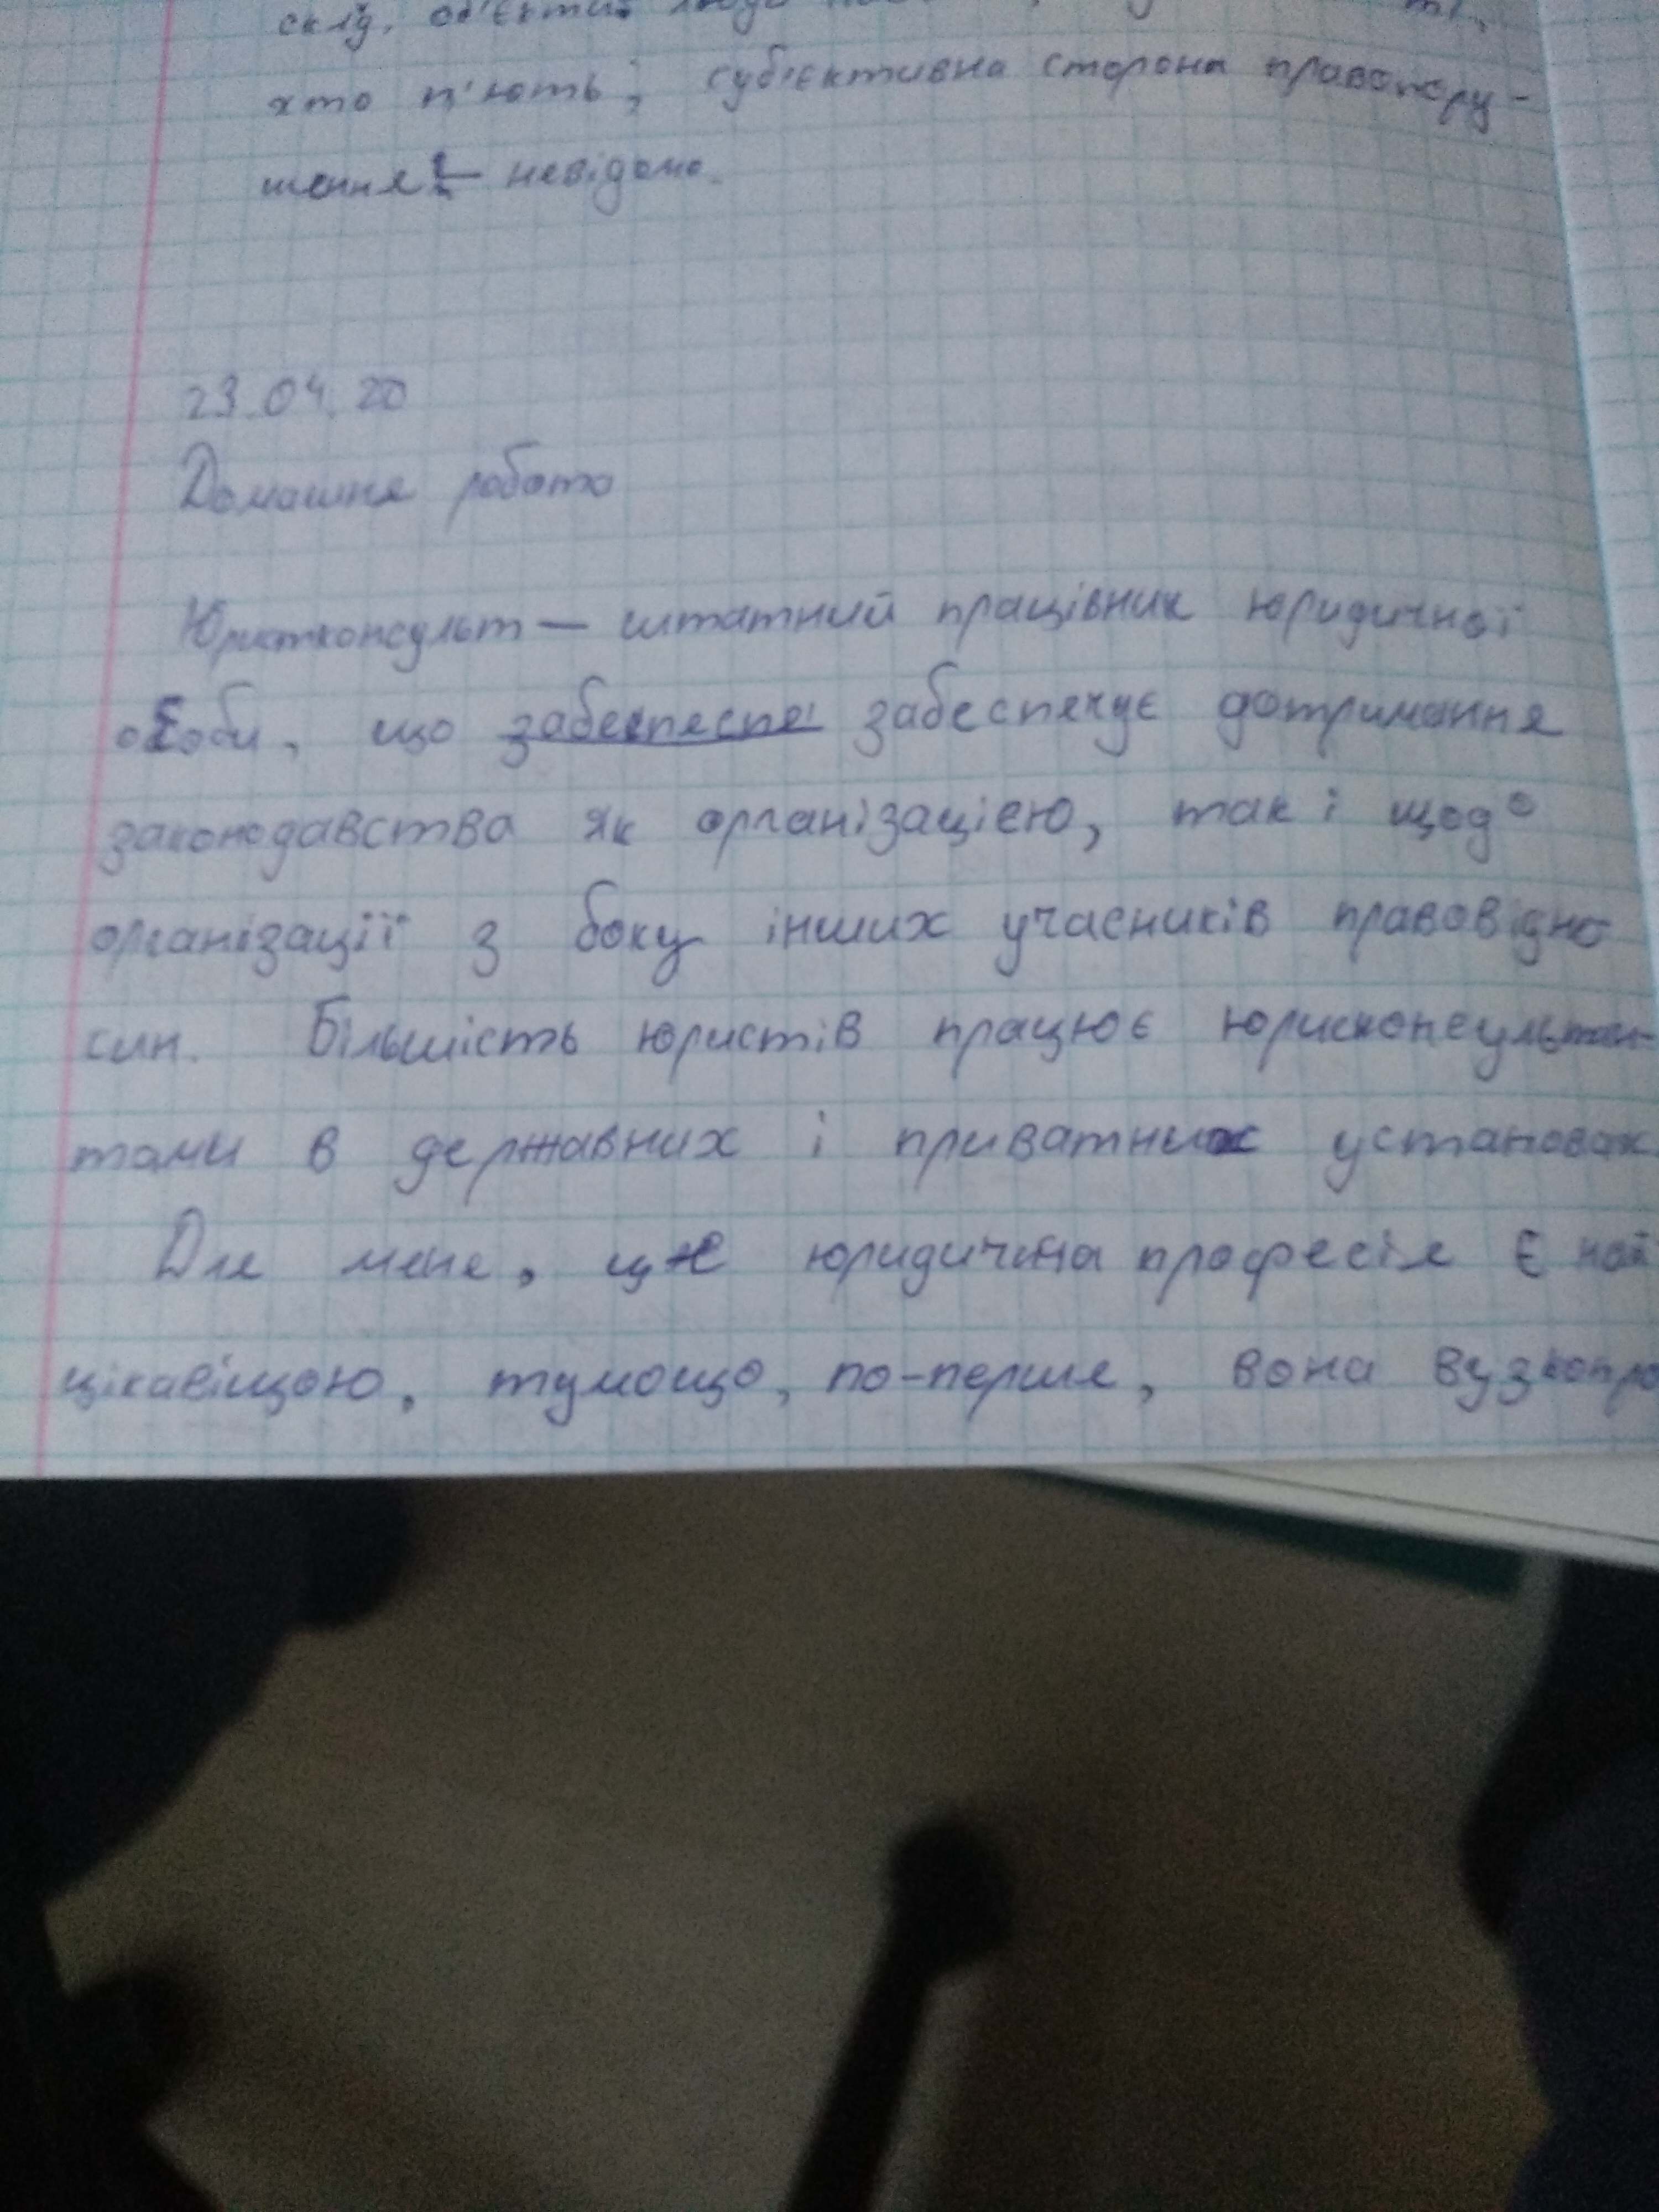 склу, об'єктий люди
хто п'ють; субєктивна сторона правопору-
шення - невідомо.
23.04.20
Домашня робота
Юристконсульт — штатний працівник юридичної
особи, що забеспеспе забеспечує дотримання
законодавства як організацією, так і щодо
організації з боку інших учасників правовідно-
син. Більшість юристів працює юрисконсультан-
тами в державних і приватних установах.
Для мене, це юридична професія є най
цікавіщою, тумощо, по-перше, вона вузкопро